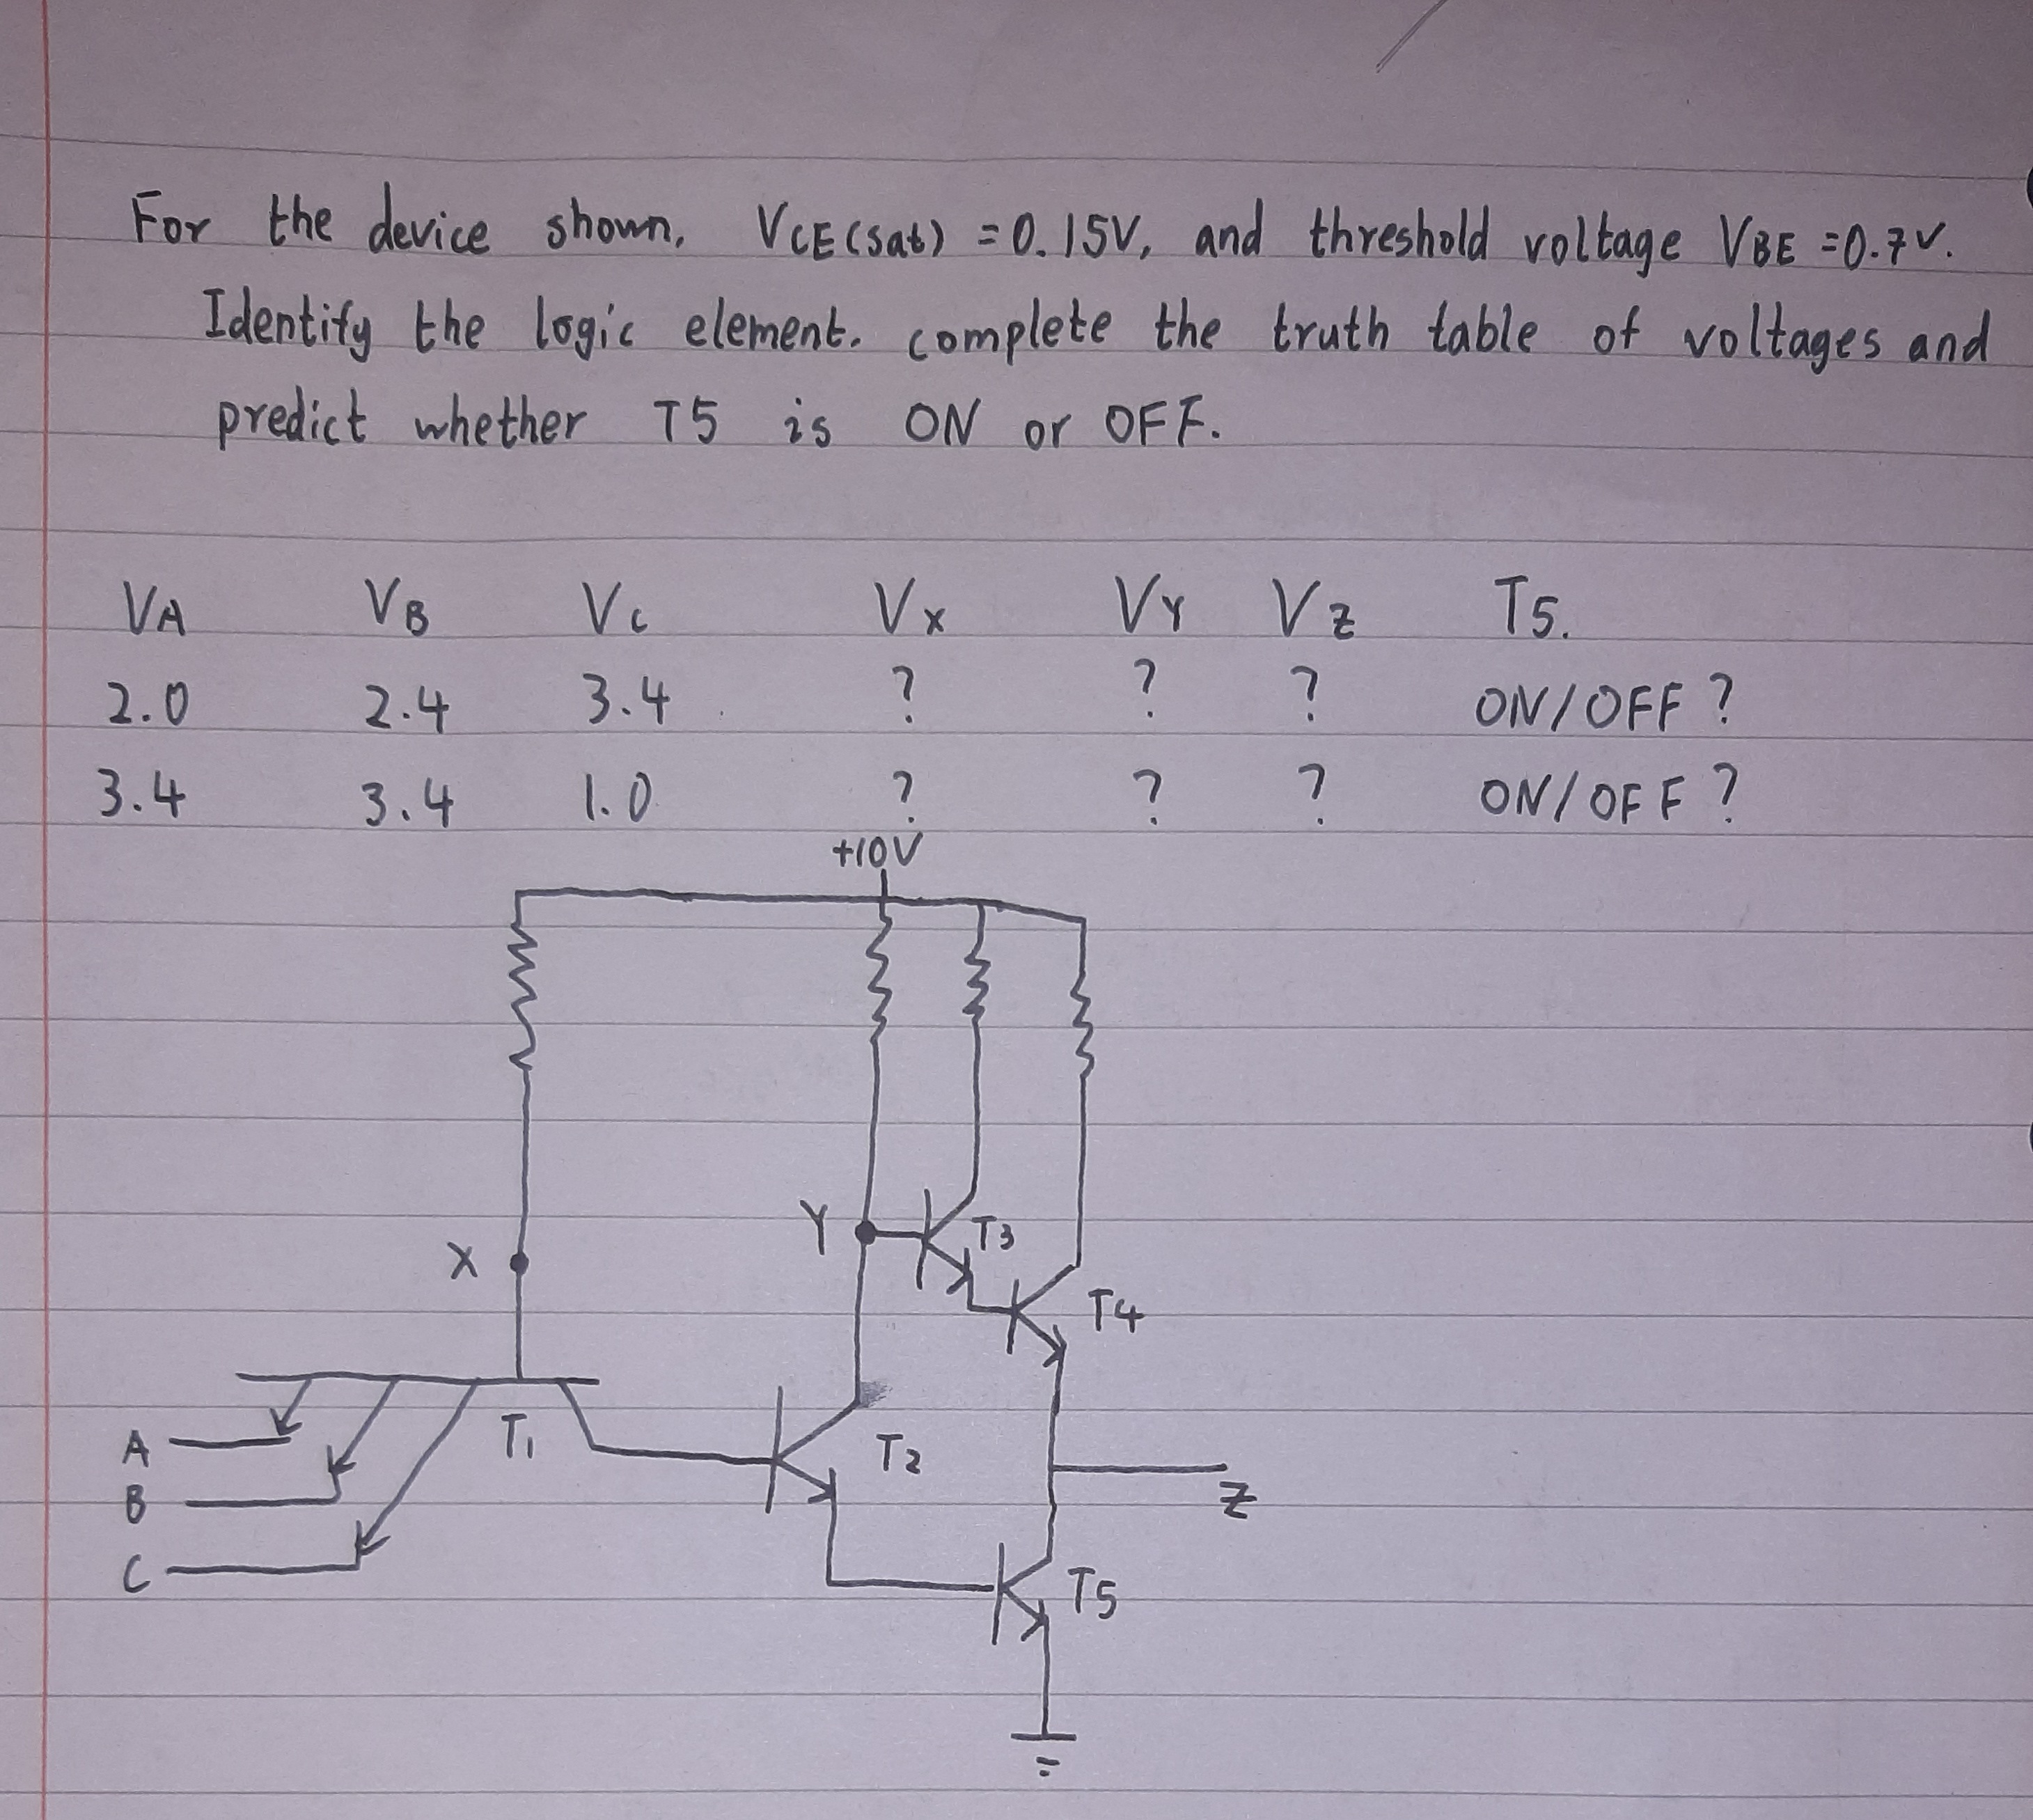 For the device shown, VCE(sat) = 0.15V, and threshold voltage VBE = 0.7V.
Identify the logic element. complete the truth table of voltages and
predict whether T5 is ON or OFF.
VA VB VC VX VY VZ T5.
2.0 2.4 3.4 ? ? ? ON/OFF ?
3.4 3.4 1.0 ? ? ? ON/OFF ?
+10V
Y T3
X
T4
A T1 T2
B Z
C T5